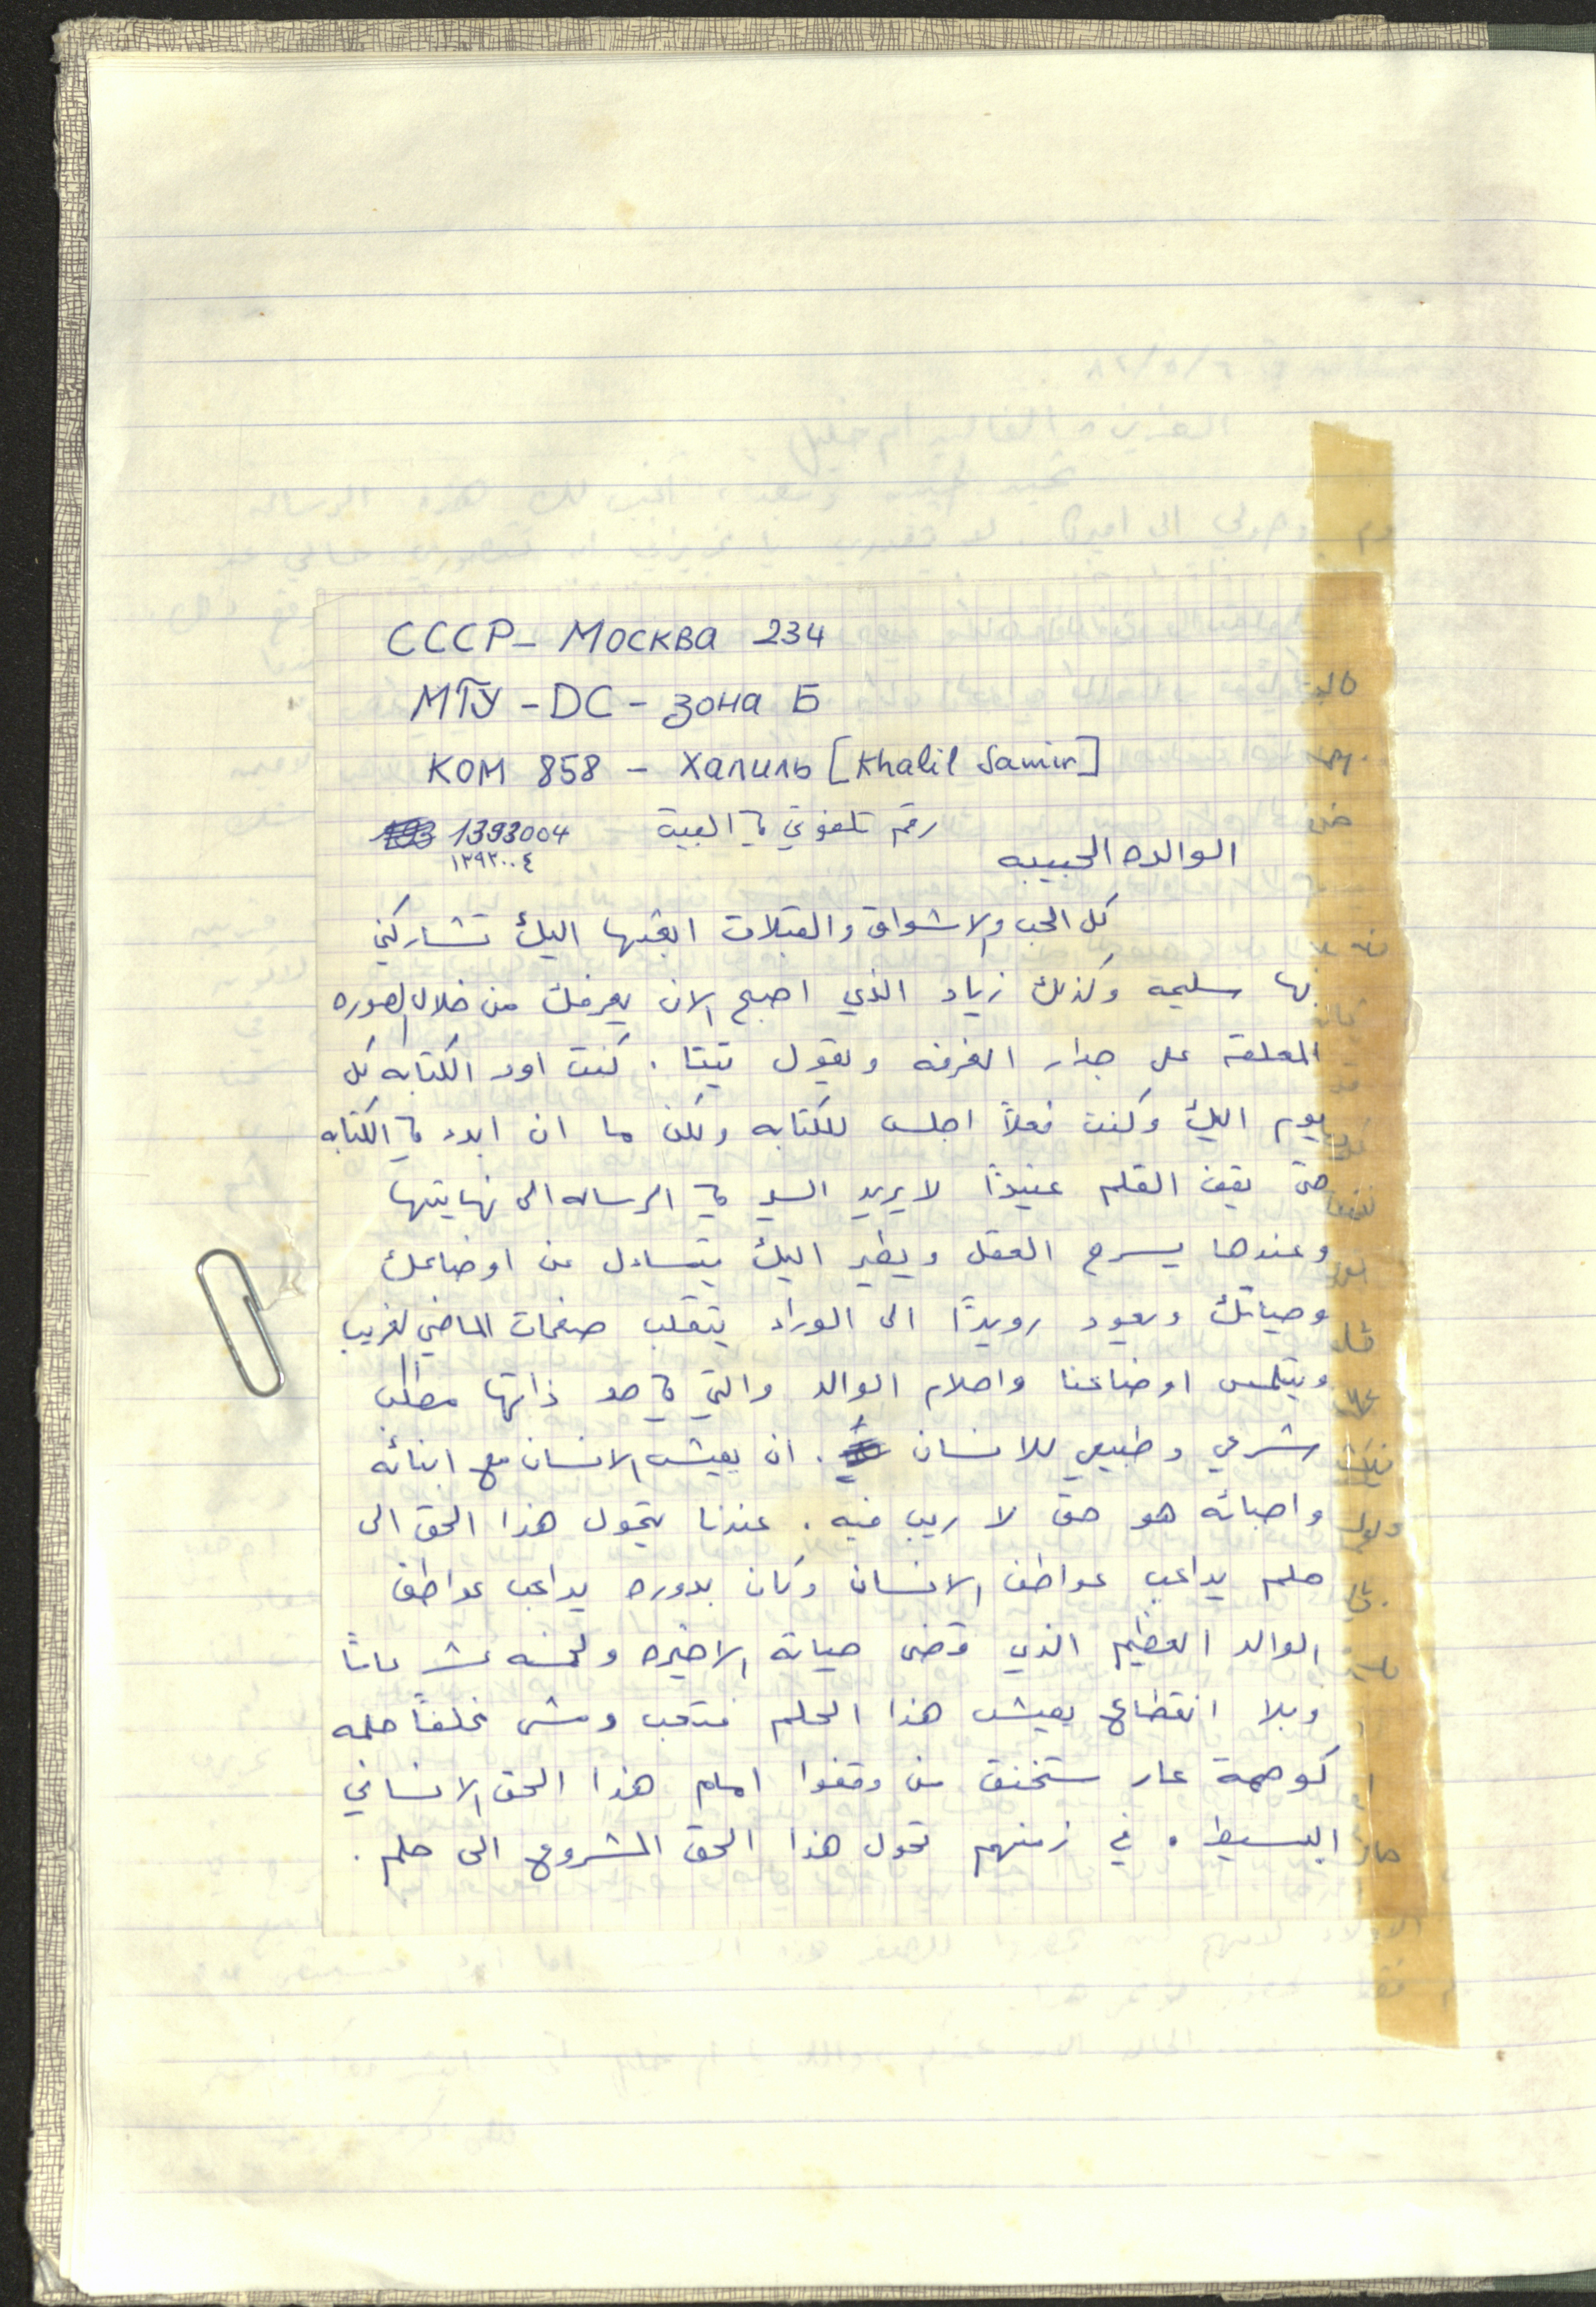 СССР - Москва 234
МГУ - DC - зона Б
КОМ 858 - Халиль [Khalil Samir]
رقم تلفوني في البيت 1393004
١٣٩٣٠٠٤
الوالده الحبيبه
كل الحب والاشواق والقبلات ابعثها اليك تشاركني
بها سليمه وكذلك زياد الذي اصبح الان يعرفك من خلال الصوره
المعلقة على جدار الغرفه ويقول تيتا . كنت اود الكتابه كل
يوم اليك وكنت فعلاً اجلس للكتابه ولكن ما ان ابدء في الكتابه
حتى يقف القلم عنيداً لا يريد السير في الرساله الى نهايتها
وعندها يسرح العقل ويطير اليك يتساءل عن اوضاعك
وحياتك ويعود رويداً الى الوراء يتقلب صفحات الماضي القريب
ويتلمس اوضاعنا واحلام الوالد والتي في حد ذاتها مطلب
شرعي وطبيعي للانسان . ان يعيش الانسان مع ابنائه
واحبائه هو حق لا ريب فيه . عندنا يتحول هذا الحق الى
حلم يداعب عواطف الانسان وكان بدوره يداعب عواطف
الوالد العظيم الذي قضى حياته الاخيره ولخمسه عشر عاماً
وبلا انقطاع يعيش هذا الحلم فتعب ومشى مخلفاً حلمه
كوصمة عار ستخنق من وقفوا امام هذا الحق الانساني
البسيط . في زمنهم تحول هذا الحق المشروع الى حلم .